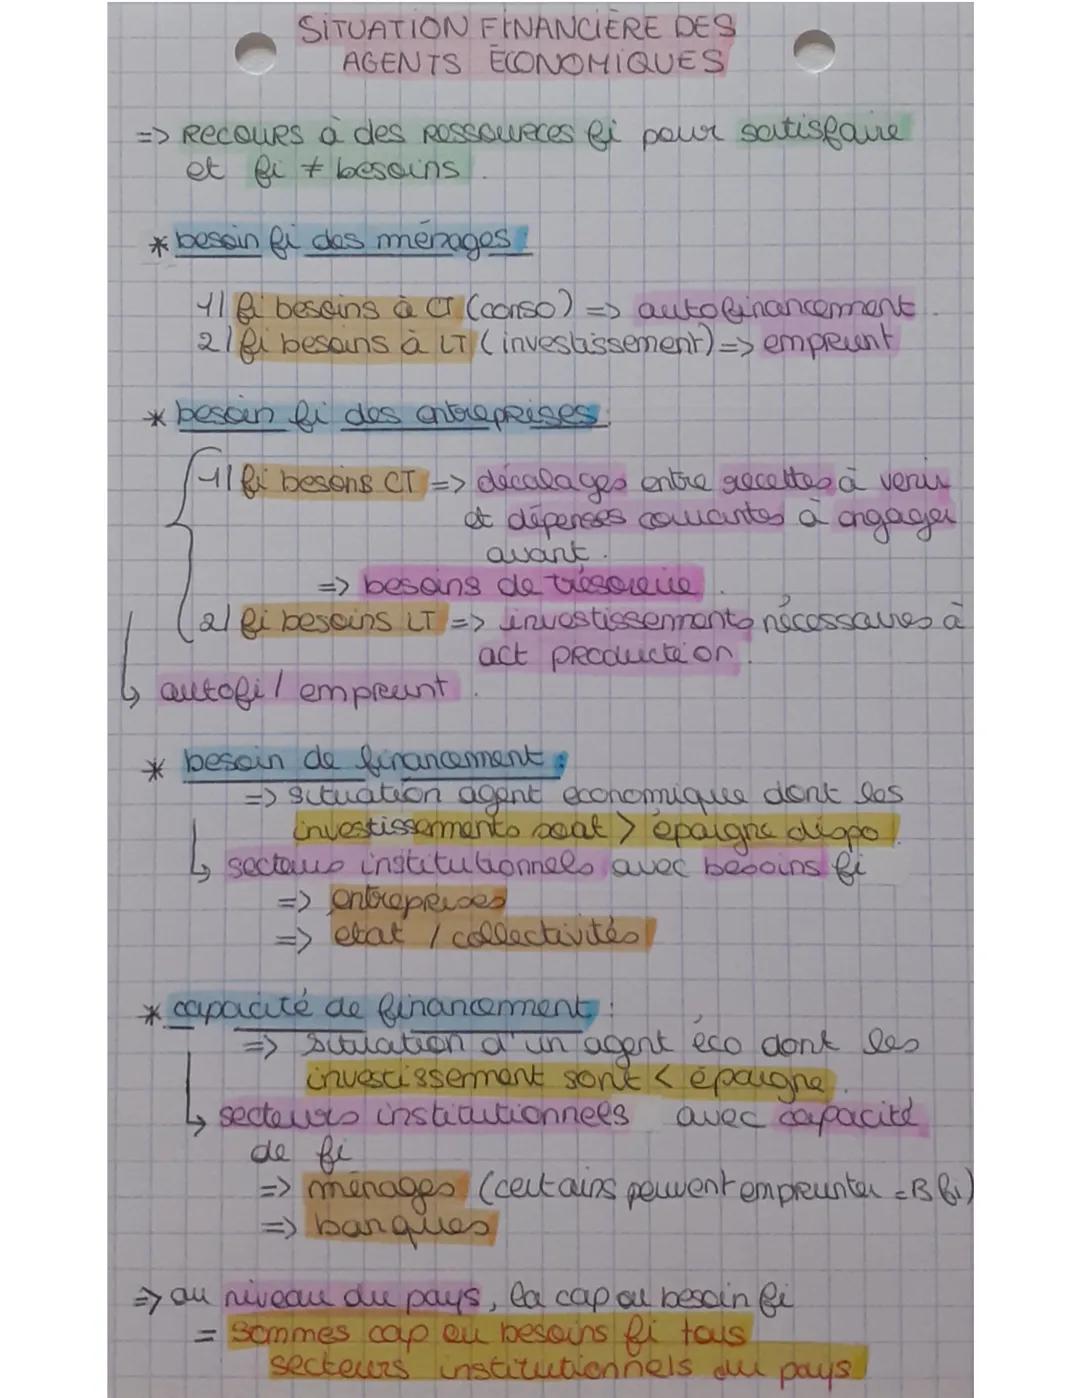 SITUATION FINANCIÈRE DES
AGENTS ÉCONOMIQUES
=> Recours à des ressources fi pour satisfaire
et fi ≠ besoins.
* besoin fi des ménages :
1/ fi besoins à CT (conso) => autofinancement.
2/ fi besoins à LT (investissement) => emprunt
* besoin fi des entreprises :
1/ fi besoins CT => décalages entre recettes à venir
et dépenses courantes à engager
avant.
=> besoins de trésorerie.
2/ fi besoins LT => investissements nécessaires à
act production.
↳ autofi / emprunt.
* besoin de financement :
=> situation agent economique dont les
investissements sont > épargne dispo
↳ secteurs institutionnels avec besoins fi
=> entreprises
=> etat / collectivités
* capacité de financement :
=> situation d'un agent éco dont les
investissement sont < épargne.
↳ secteurs institutionnels avec capacité
de fi
=> ménages (certains peuvent emprunter = B fi)
=> banques
=> au niveau du pays, la cap ou besoin fi
= sommes cap ou besoins fi tous
secteurs institutionnels du pays